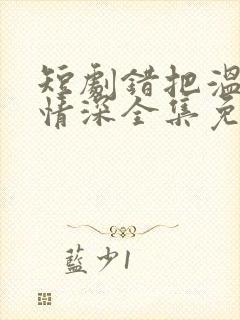 短劇錯把溫
情深全集免
藍少1